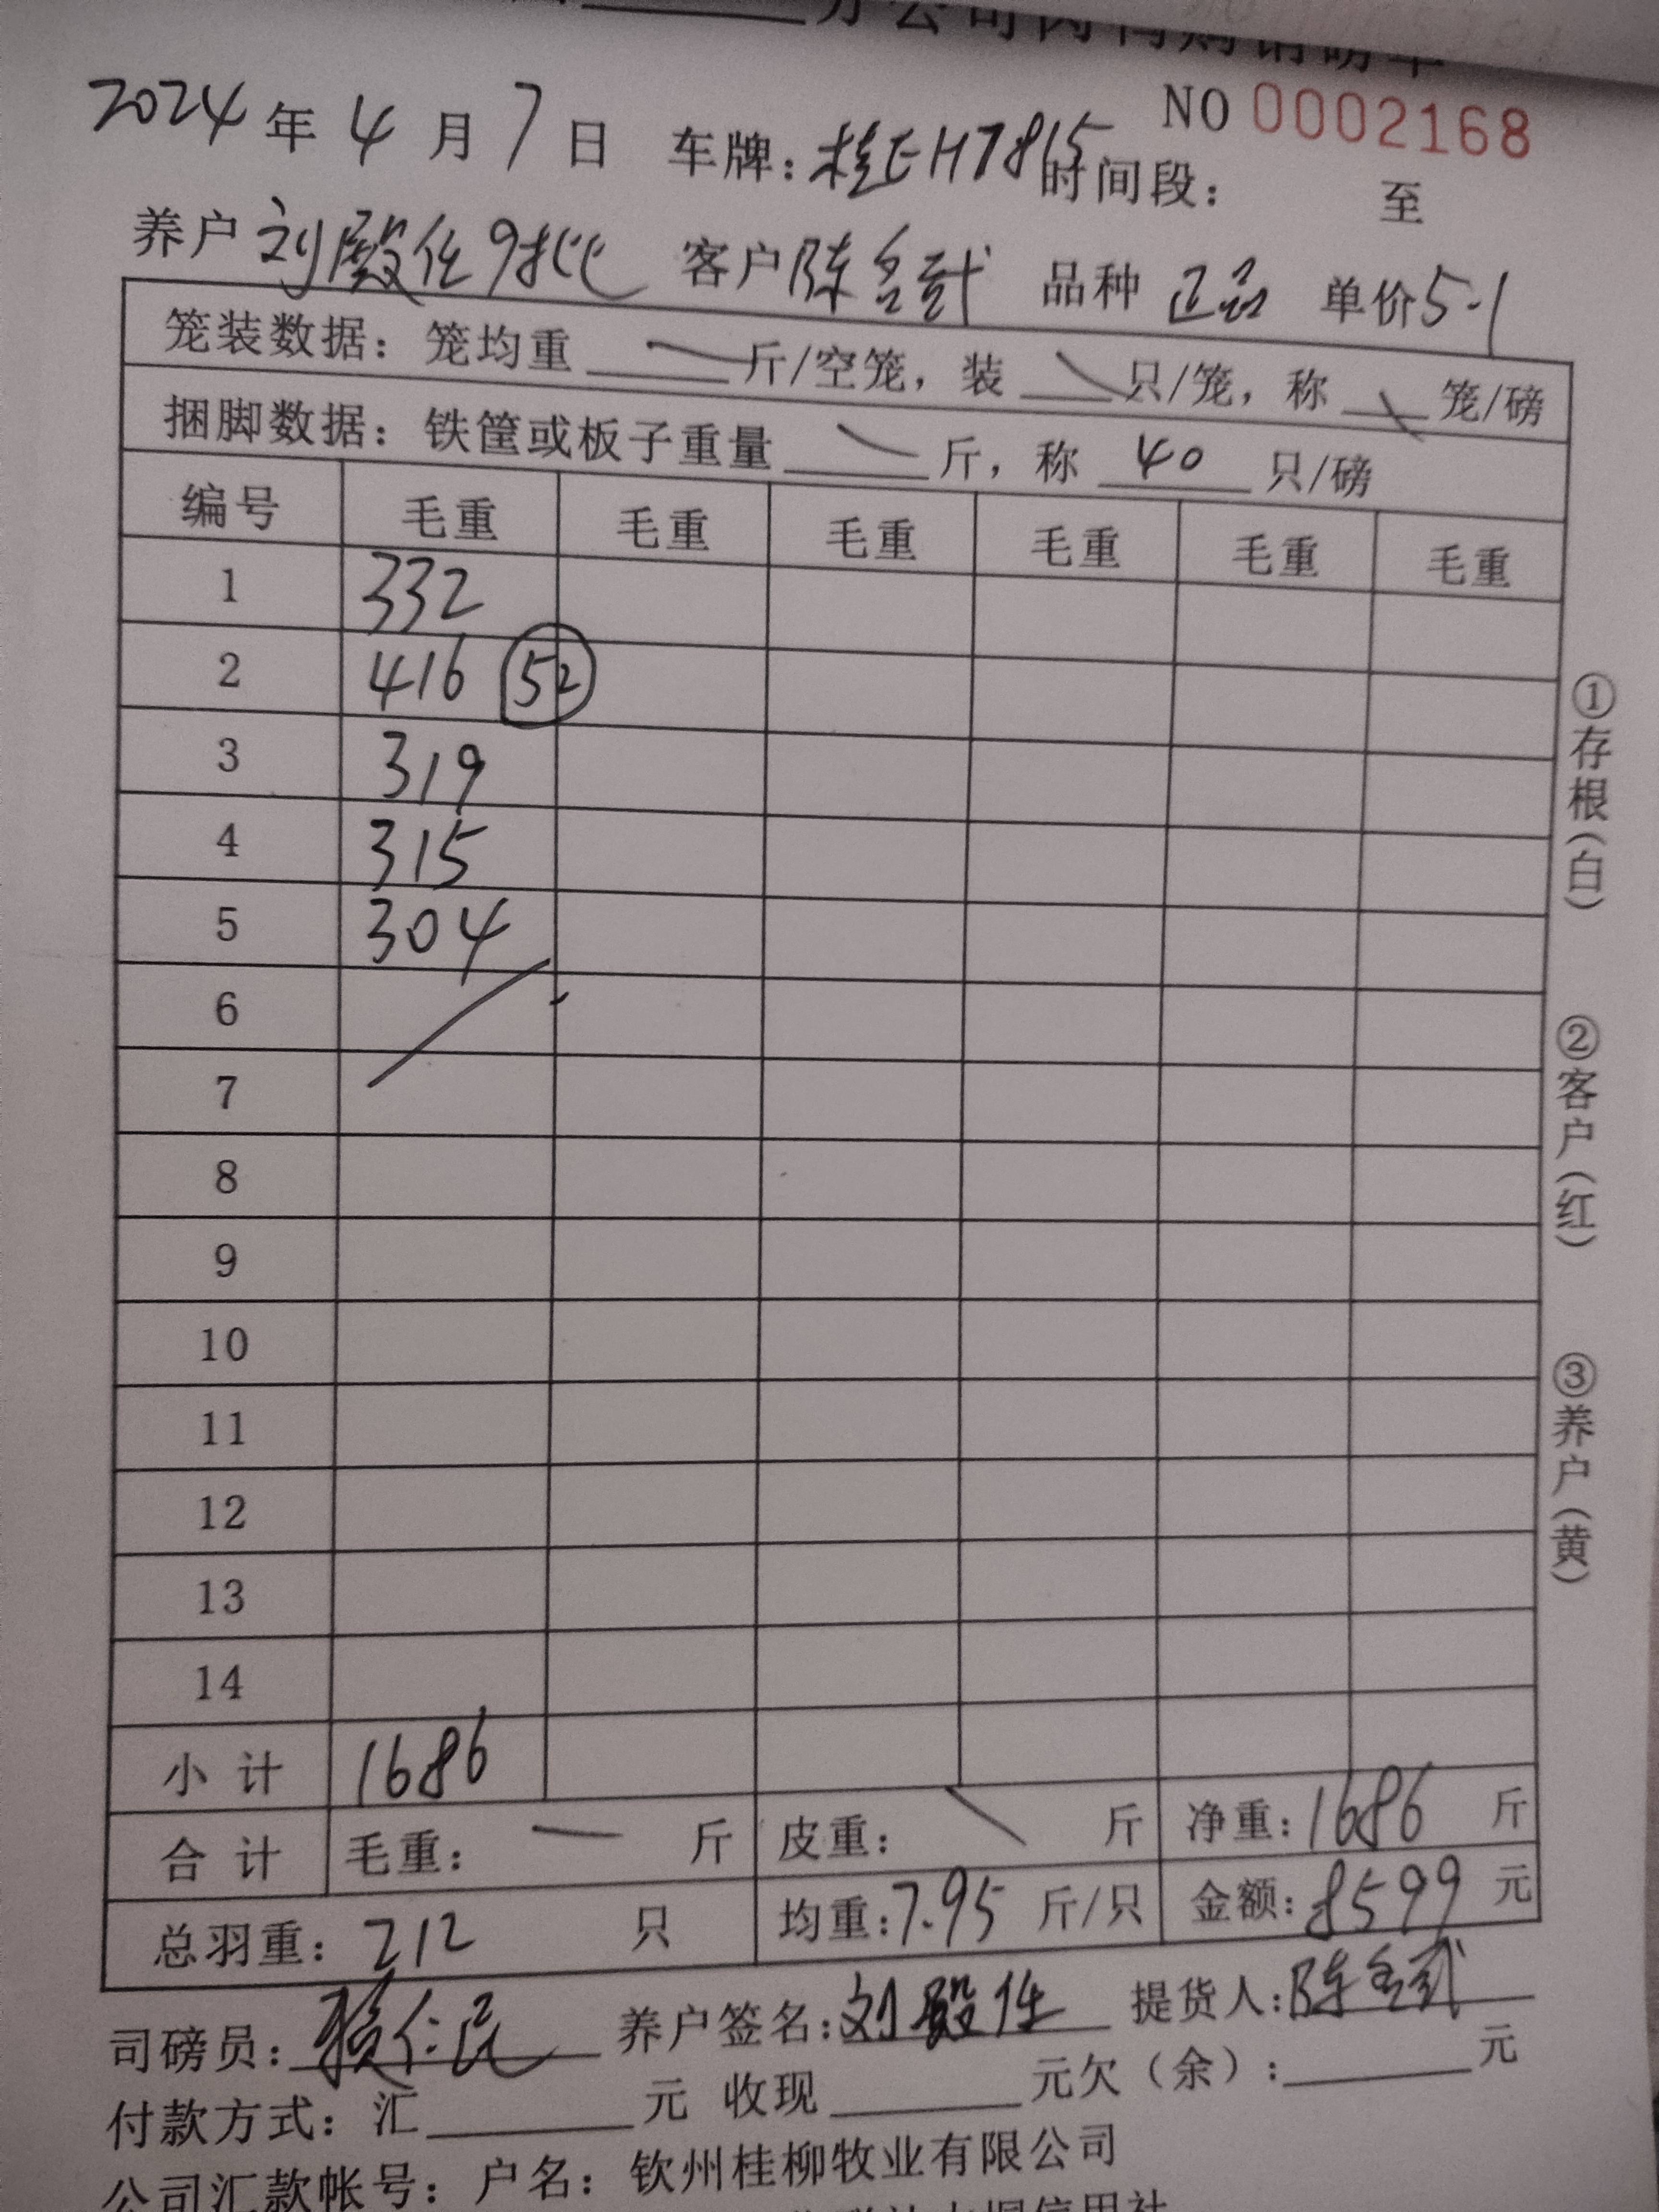 分公司肉鸭购销磅单
NO 0002168
2024年4月7日 车牌:桂EH7815 时间段: 至
养户 刘殿任9批 客户 陈 品种 正品 单价5.1
笼装数据:笼均重 斤/空笼,装 只/笼,称 笼/磅
捆脚数据:铁筐或板子重量 斤,称 40 只/磅
编号 毛重 毛重 毛重 毛重 毛重 毛重
1 332
2 416 52
3 319
4 315
5 304
6
7
8
9
10
11
12
13
14
小计 1686
合计 毛重: 一 斤 皮重: 斤 净重:1686 斤
总羽重:212 只 均重:7.95 斤/只 金额:8599 元
司磅员: 仁民 养户签名:刘殿任 提货人:陈
付款方式:汇 元 收现 元欠(余): 元
公司汇款帐号:户名:钦州桂柳牧业有限公司
①存根(白)
②客户(红)
③养户(黄)